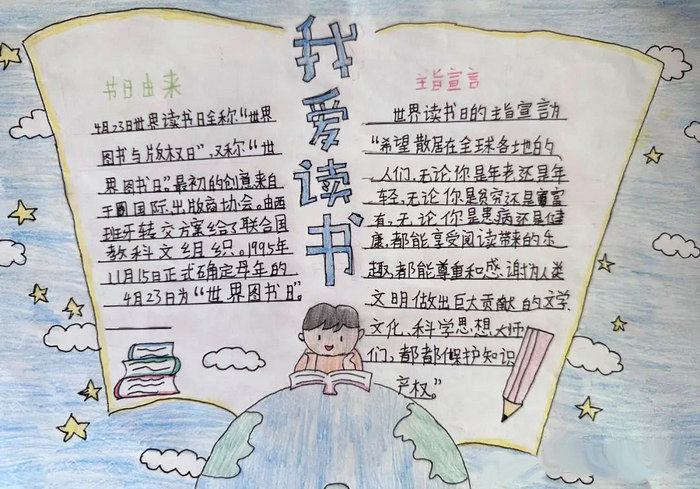 我爱读书
节日由来
4月23日世界读书日全称“世界
图书与版权日”,又称“世
界图书日”。最初的创意来自
于国际出版商协会。由西
班牙转交方案给了联合国
教科文组织。1995年
11月15日正式确定每年的
4月23日为“世界图书日”。
主旨宣言
世界读书日的主旨宣言为
“希望散居在全球各地的
人们,无论你是年老还是年
轻,无论你是贫穷还是富
有,无论你是患病还是健
康,都能享受阅读带来的乐
趣,都能尊重和感谢为人类
文明做出巨大贡献的文学
文化、科学思想大师
们,都都保护知识
产权。”